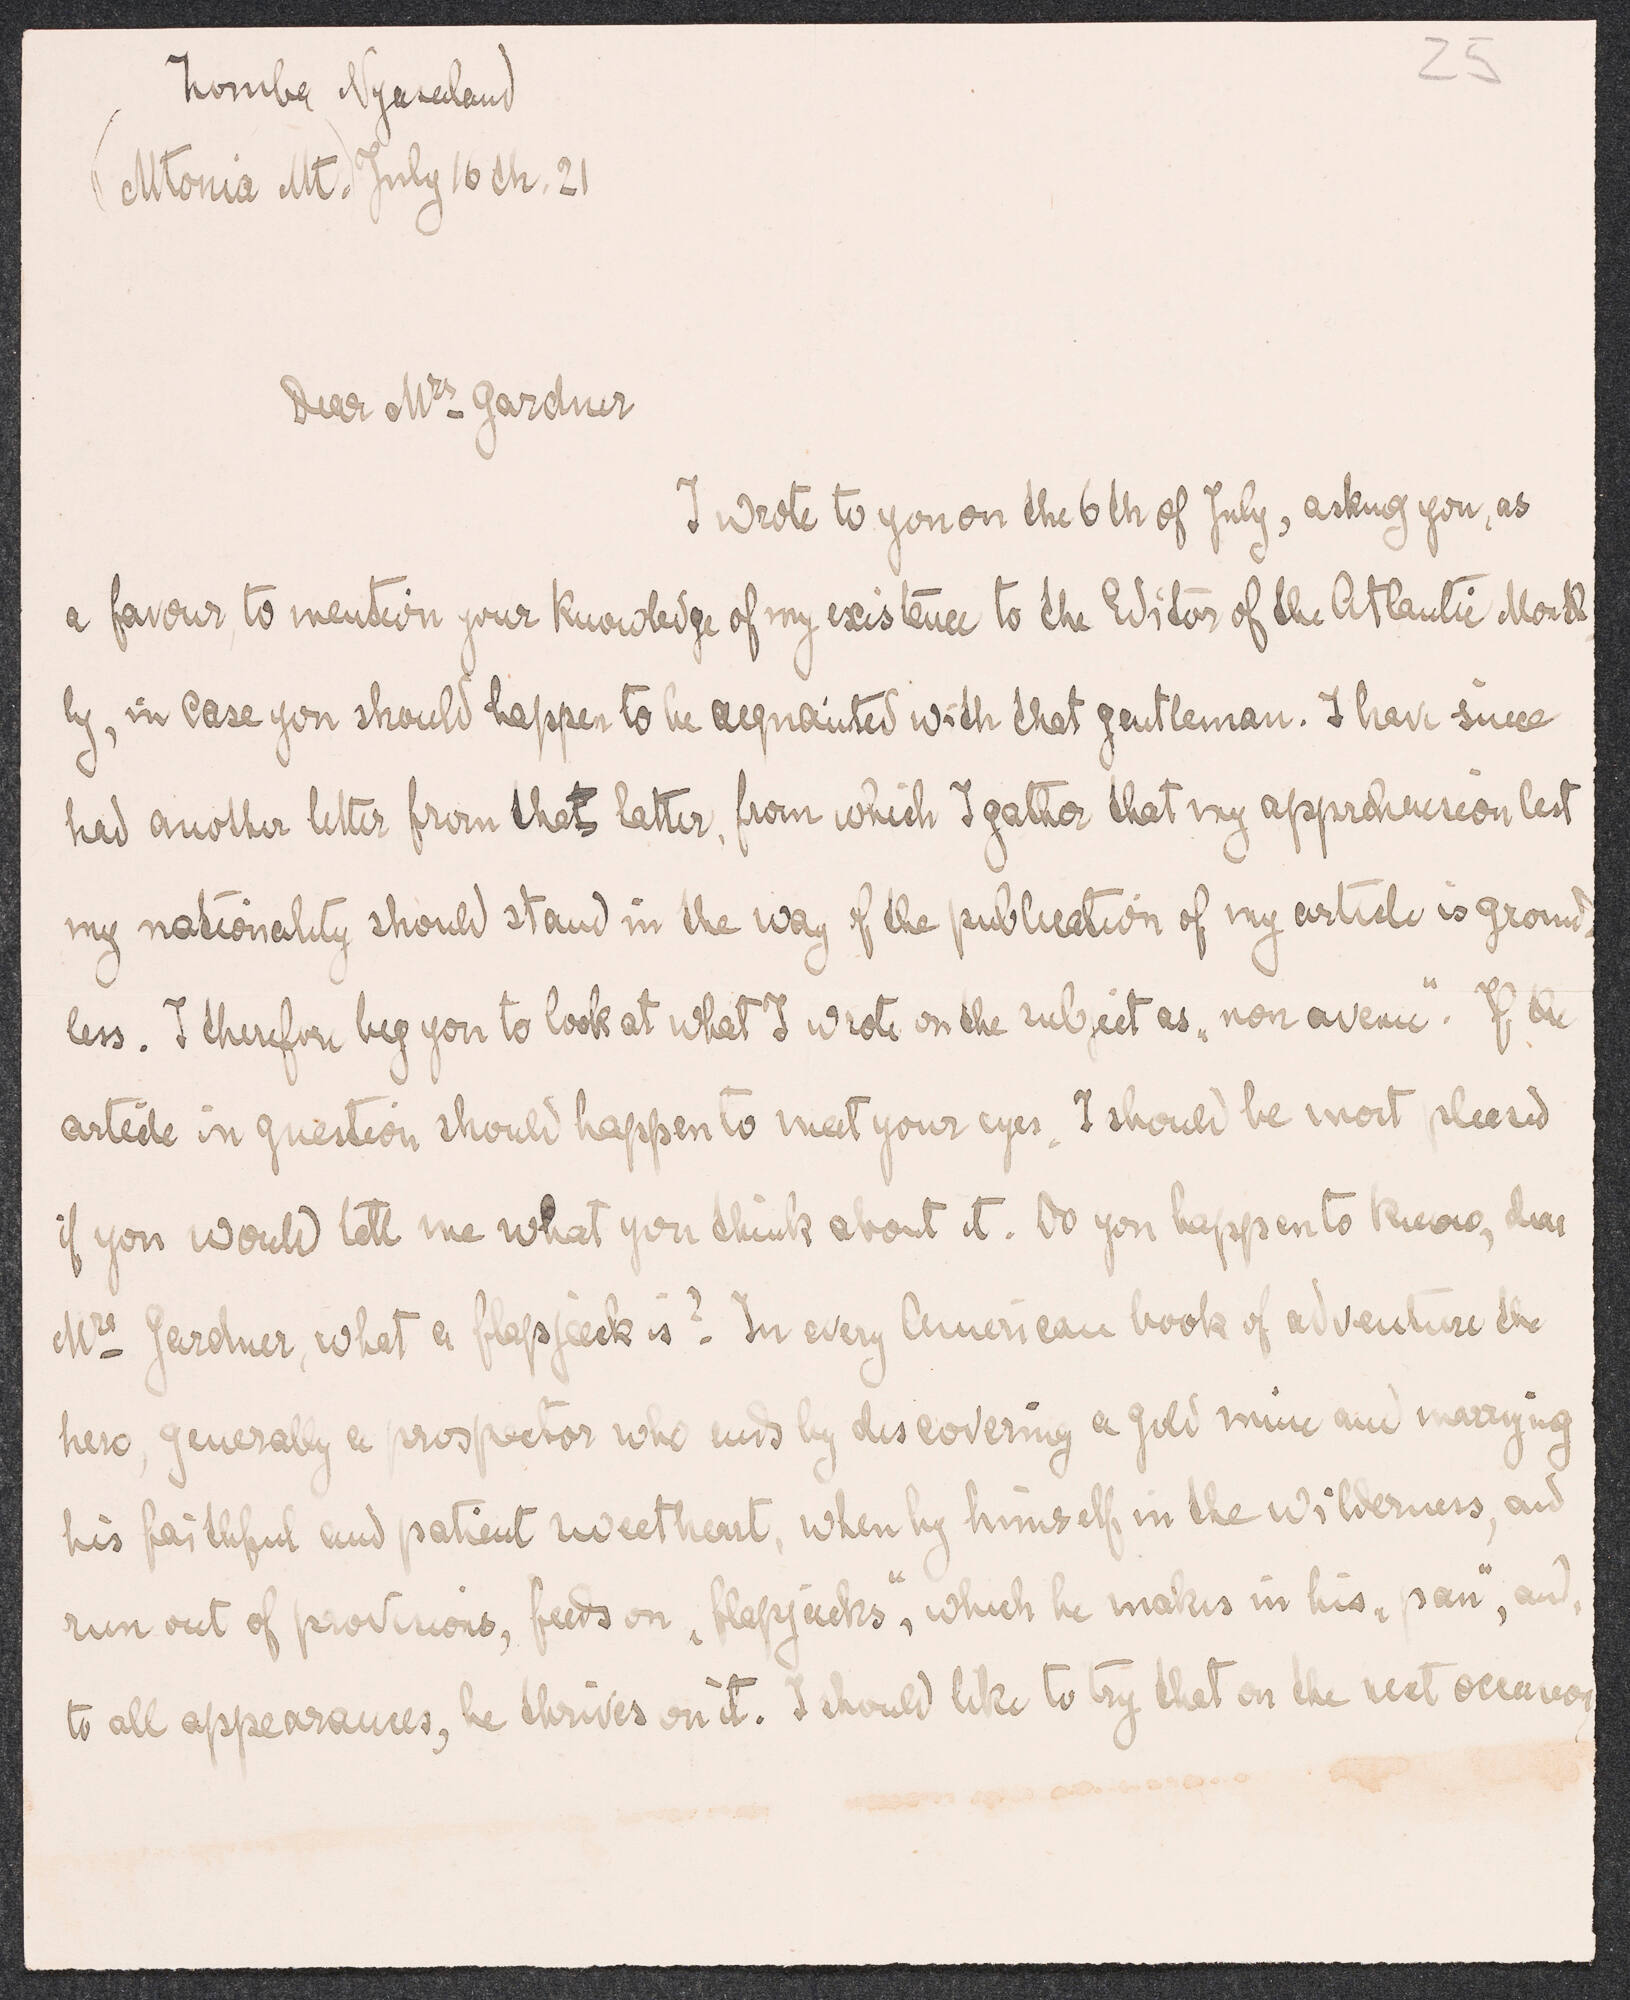 25
Zomba Nyasaland
(Mtonia Mt.) July 16th. 21
Dear Mrs Gardner
I wrote to you on the 6th of July, asking you, as
a favour, to mention your knowledge of my existence to the Editor of the Atlantic Month
ly, in case you should happen to be acquainted with that gentleman. I have since
had another letter from that latter, from which I gather that my apprehension lest
my nationality should stand in the way of the publication of my article is ground-
less. I therefore beg you to look at what I wrote on the subject as „non avenu“. If the
article in question should happen to meet your eyes, I should be most pleased
if you would tell me what you think about it. Do you happen to know, dear
Mrs Gardner, what a flapjack is? In every American book of adventure the
hero, generally a prospector who ends by discovering a gold mine and marrying
his faithful and patient sweetheart, when by himself in the wilderness, and
run out of provisions, feeds on „flapjacks“, which he makes in his „pan“, and,
to all appearances, he thrives on it. I should like to try that on the next occasion,